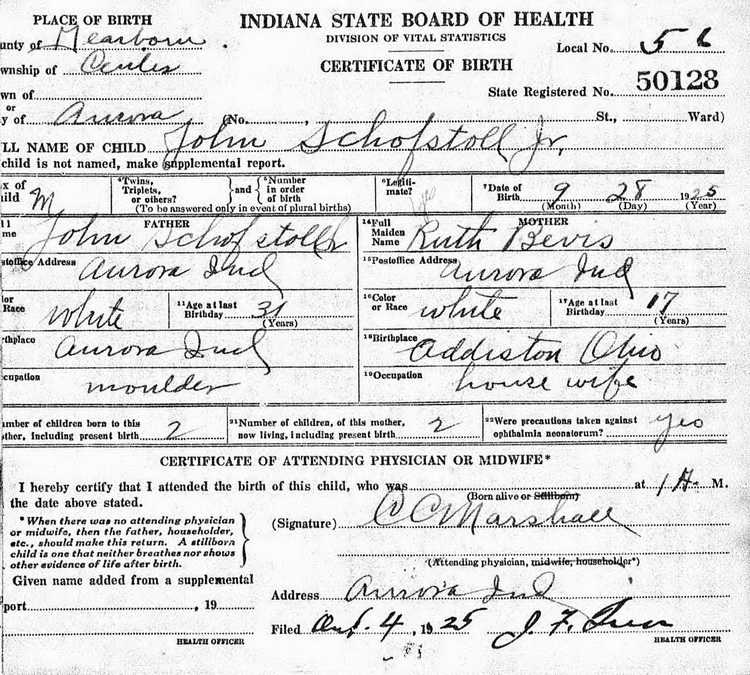 PLACE OF BIRTH
INDIANA STATE BOARD OF HEALTH
DIVISION OF VITAL STATISTICS
unty of Dearborn
Local No. 56
wnship of Center
CERTIFICATE OF BIRTH
wn of
State Registered No. 50128
or
y of Aurora (No. , St., Ward)
LL NAME OF CHILD John Schofstoll Jr.
child is not named, make supplemental report.
x of
ild M
⁴Twins, Triplets, or others? } and { ⁵Number in order of birth
(To be answered only in event of plural births)
⁶Legiti-
mate? yes
⁷Date of
Birth 9 28 1925
(Month) (Day) (Year)
FATHER
me John Schofstoll
MOTHER
¹⁴Full
Maiden
Name Ruth Bevis
stoffice Address
Aurora Ind
¹⁵Postoffice Address
Aurora Ind
lor
Race white
¹¹Age at last
Birthday 31
(Years)
¹⁶Color
or Race white
¹⁷Age at last
Birthday 17
(Years)
thplace
Aurora Ind
¹⁸Birthplace
Addiston Ohio
cupation
moulder
¹⁹Occupation
house wife
umber of children born to this
other, including present birth 2
²¹Number of children, of this mother,
now living, including present birth 2
²²Were precautions taken against
ophthalmia neonatorum? yes
CERTIFICATE OF ATTENDING PHYSICIAN OR MIDWIFE*
I hereby certify that I attended the birth of this child, who was at 1 A. M.
(Born alive or Stillborn)
the date above stated.
*When there was no attending physician
or midwife, then the father, householder,
etc., should make this return. A stillborn
child is one that neither breathes nor shows
other evidence of life after birth.
(Signature) C C Marshall
(Attending physician, midwife, householder*)
Given name added from a supplemental
Address Aurora Ind
port , 19
Filed Oct. 4, 1925 J. F.
HEALTH OFFICER
HEALTH OFFICER